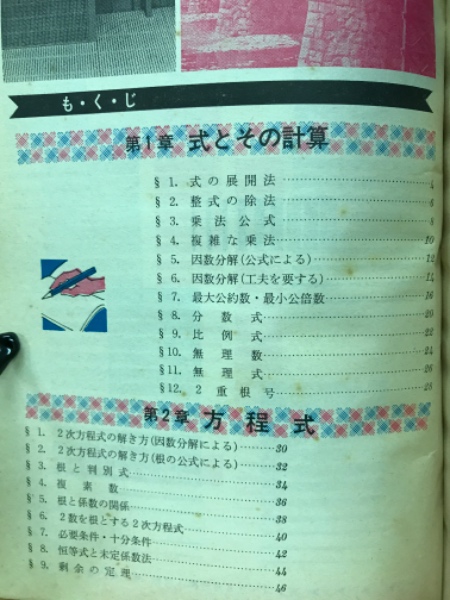 も・く・じ
第1章 式とその計算
§ 1. 式の展開法 4
§ 2. 整式の除法 6
§ 3. 乗法公式 8
§ 4. 複雑な乗法 10
§ 5. 因数分解(公式による) 12
§ 6. 因数分解(工夫を要する) 14
§ 7. 最大公約数・最小公倍数 16
§ 8. 分数式 20
§ 9. 比例式 22
§10. 無理数 24
§11. 無理式 26
§12. 2重根号 28
第2章 方程式
§ 1. 2次方程式の解き方(因数分解による) 30
§ 2. 2次方程式の解き方(根の公式による) 32
§ 3. 根と判別式 34
§ 4. 複素数 36
§ 5. 根と係数の関係 38
§ 6. 2数を根とする2次方程式 40
§ 7. 必要条件・十分条件 42
§ 8. 恒等式と未定係数法 44
§ 9. 剰余の定理 46